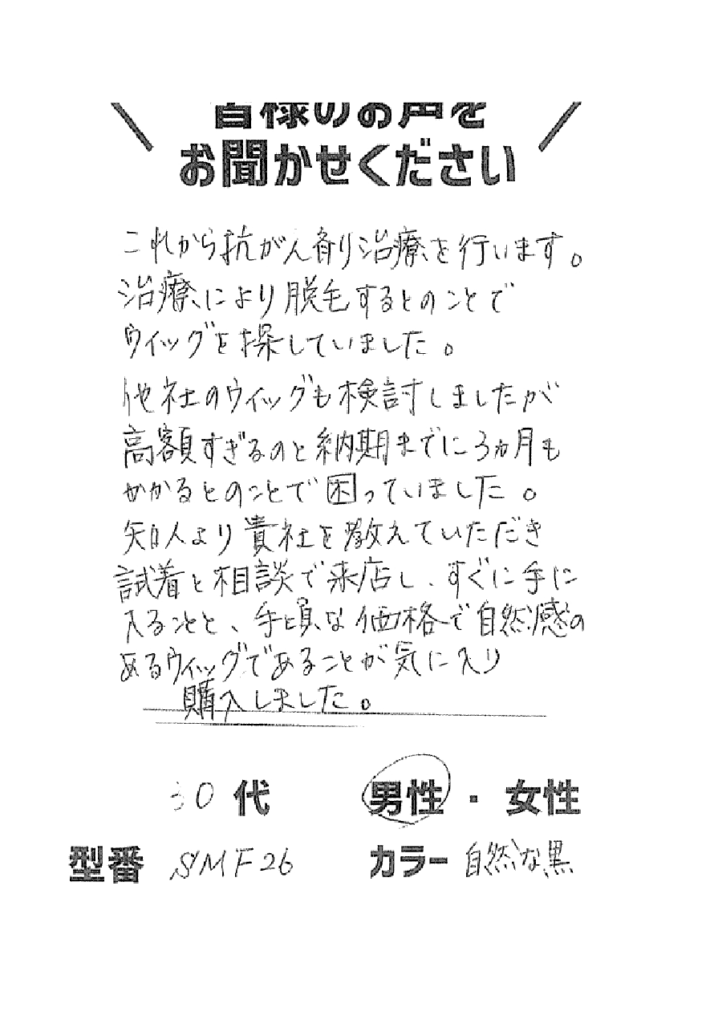 皆様のお声を
お聞かせください
これから抗がん剤治療を行います。
治療により脱毛するとのことで
ウィッグを探していました。
他社のウィッグも検討しましたが
高額すぎるのと納期までに3ヵ月も
かかるとのことで困っていました。
知人より貴社を教えていただき
試着と相談で来店し、すぐに手に
入ることと、手頃な価格で自然感の
あるウィッグであることが気に入り
購入しました。
30代 男性・女性
型番 SMF26 カラー 自然な黒